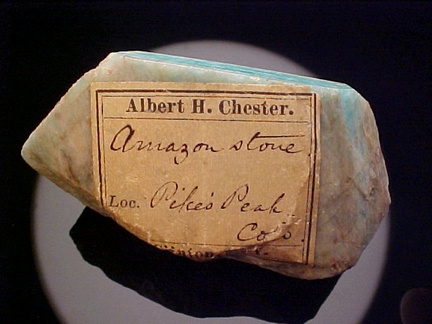 Albert H. Chester.
Amazon stone
Loc. Pike's Peak
Colo.